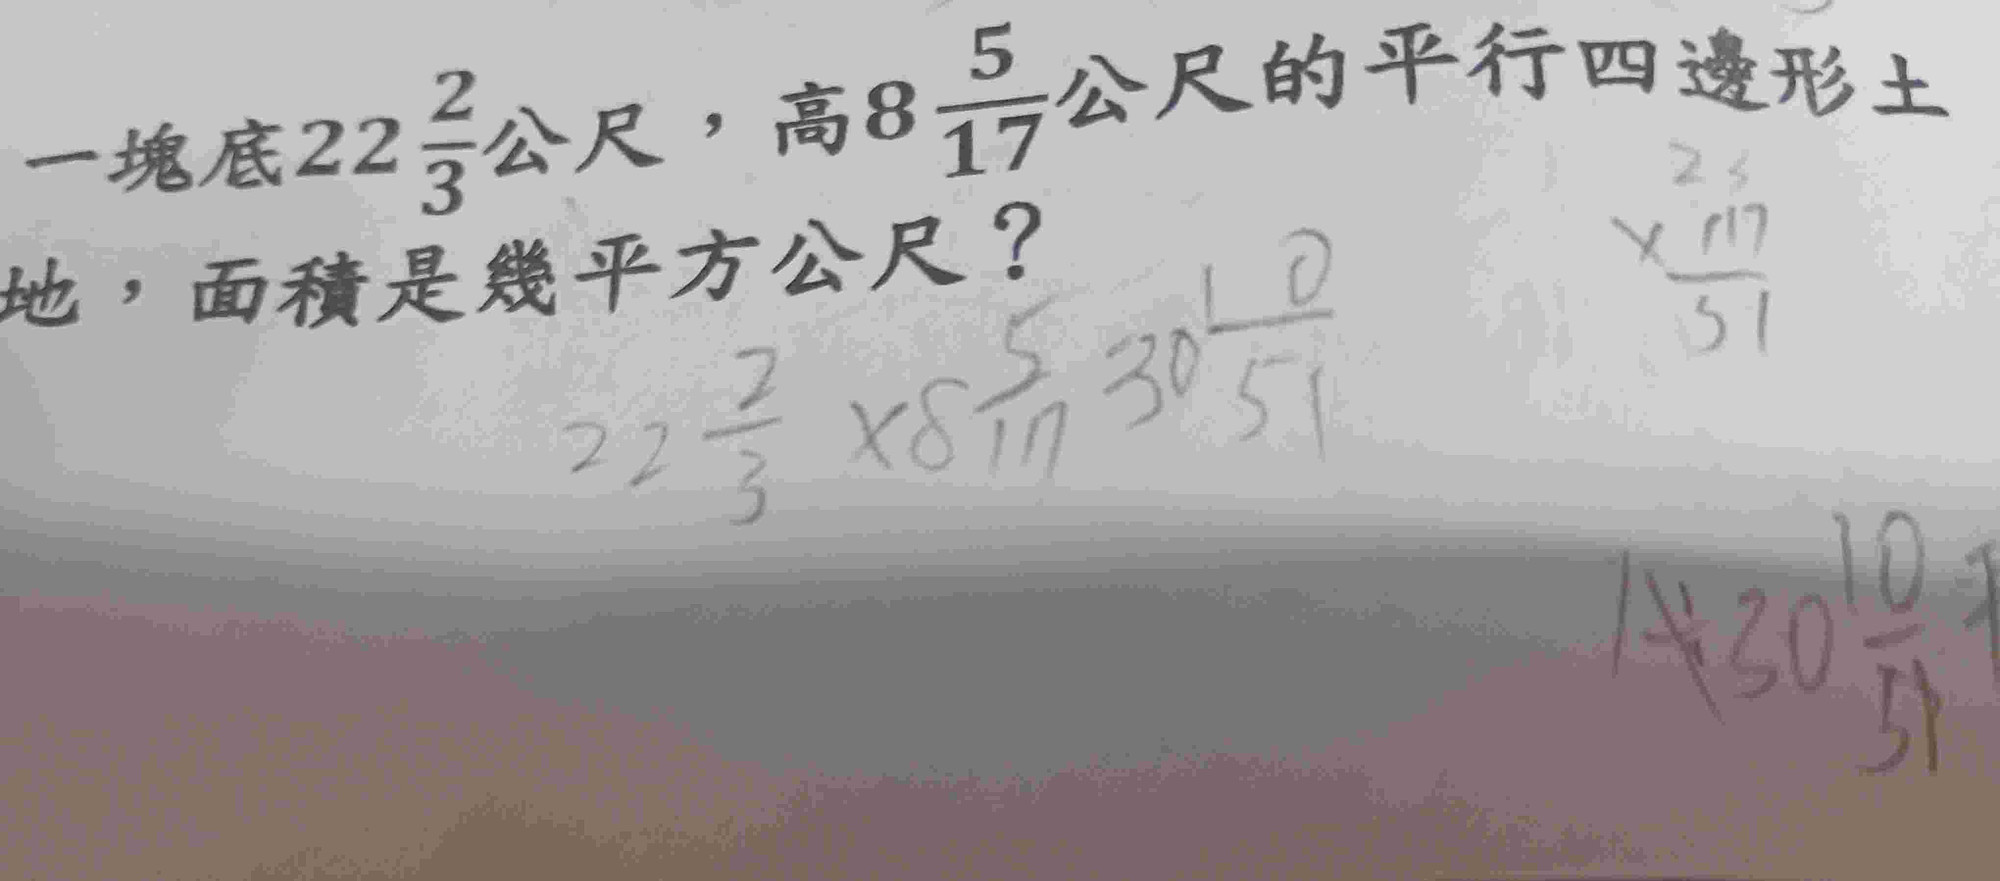 一塊底22 2/3公尺，高8 5/17公尺的平行四邊形土
地，面積是幾平方公尺？
22 2/3 ×8 5/17 30 10/51
23
× 17
51
30 10/51